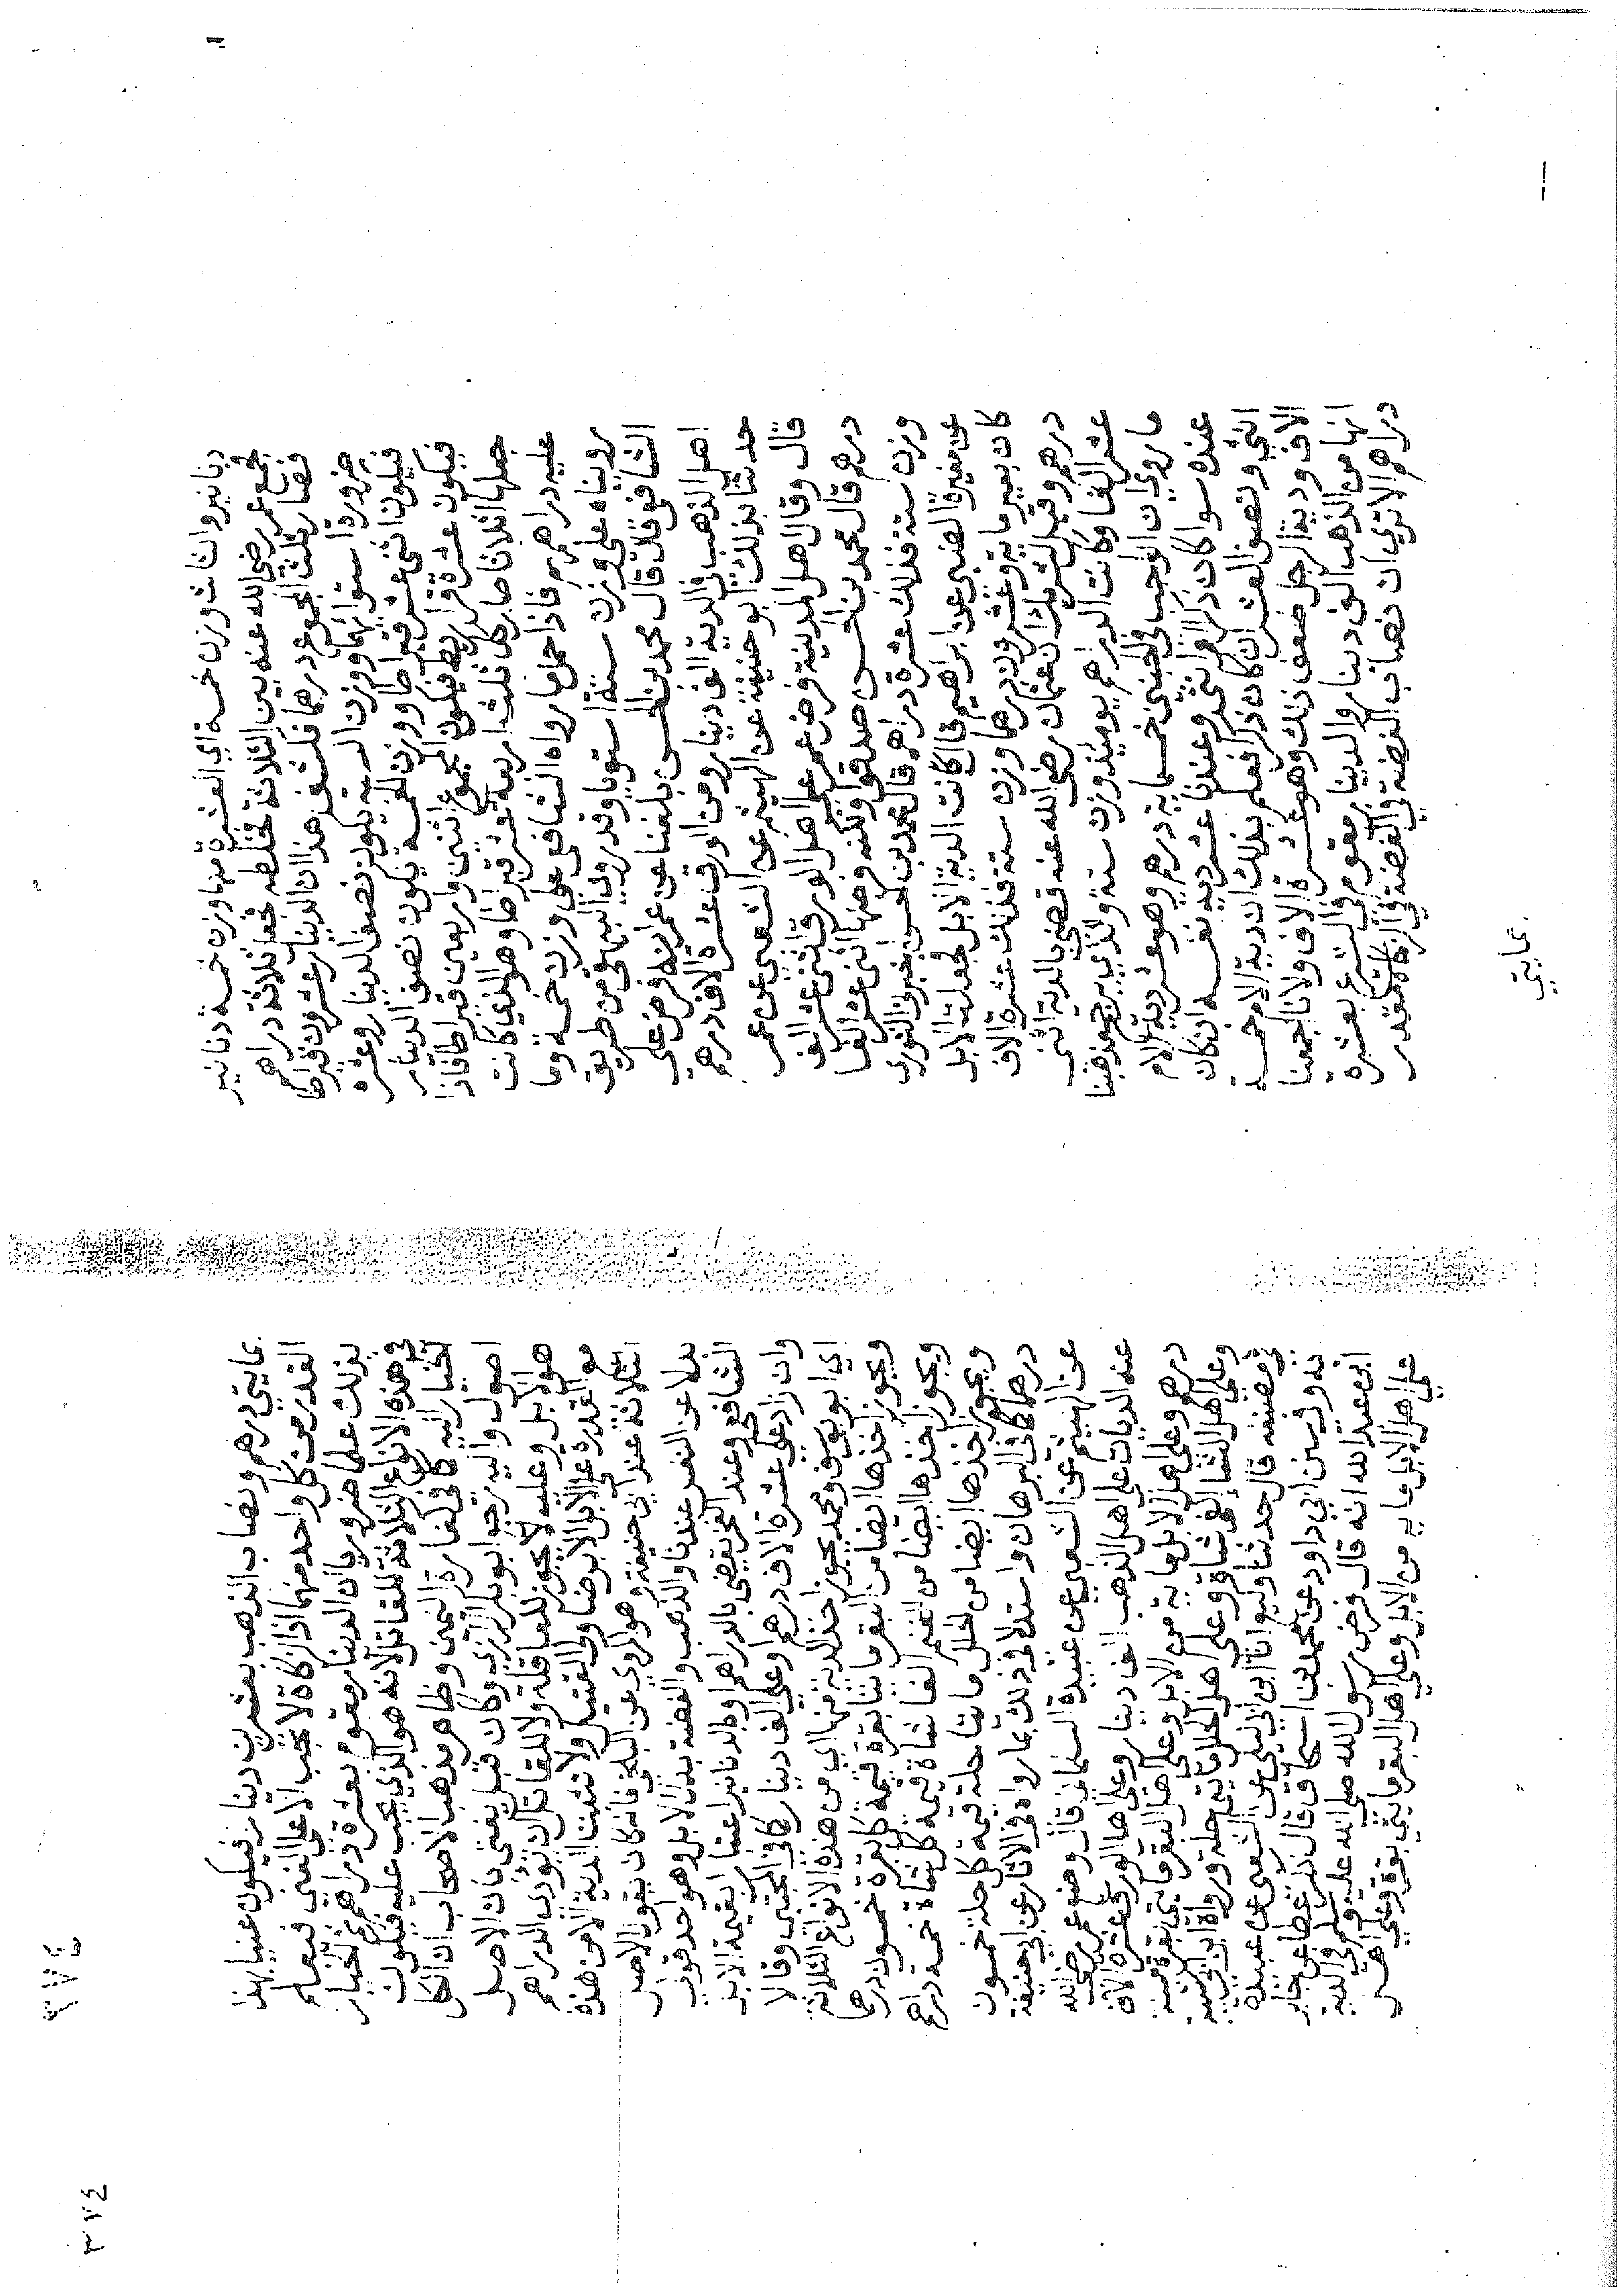 دنانير والثالث وزن خمسة اي العشرة منها وزن خمسة دنانير
فجمع عمر رضي الله عنه بين الثلاثة فخلطه فجعله ثلاثة دراهم
فصار ثلث المجموع درهما فلشف هذا ان الدينار عشرون قيراطا
ضرورة استوائهما ووزن الستة يكون نصف الدينار وعشره
فيكون اثنى عشر قيراطا ووزن الخمسة يكون نصف الدينار
فيكون عشرة قراريط فيكون المجموع اثنين واربعين قيراطا فاذا
جعلها اثلاثا صار كل ثلث اربعة عشر قيراطا وهو الذي كانت
عليه دراهمهم فاذا حمل ما رواه الشافعي على وزن خمسة وما
رويناه على وزن ستة استويا وقد روى البيهقي من طريق
الشافعي قال قال محمد بن الحسن بلغنا عن عمر انه فرض على
اهل الذهب في الدية الف دينار ومن الورق عشرة الاف درهم
حدثنا بذلك ابو حنيفة عن الهيثم عن الشعبي عن عمر
قال وقال اهل المدينة فرض عمر على اهل الورق اثنى عشر الف
درهم قال محمد بن الحسن صدقوا ولكنه فرضها اثنى عشر الفا
وزن ستة فذلك عشرة دراهم قال محمد بن الحسن اخبرني الثوري
عن مغيرة الضبي عن ابراهيم قال كانت الدية الابل فجعلت الابل
كان بعير مائة وعشرون درهما وزن ستة فذلك عشرة الاف
درهم وقيل لشريك ان عثمان رضي الله عنه قضى بالدية اثنى
عشر الفا وكانت الدراهم يومئذ وزن ستة والذي يرجح مذهبنا
ما روي ان الواجب في الجنين خمسماية درهم وهو عشر دية الام
عنده سوا كان ذكرا او انثى وعندنا عشر دية نفسه ان كان
انثى ونصف العشر ان كان ذكرا فعلم بذلك ان دية الام خمسة
الاف ودية الرجل ضعف ذلك وهو عشرة الاف ولانا اجمعنا
انها من الذهب الف دينار والدينار مقوم في الشرع بعشرة
دراهم الا ترى ان نصاب الفضة في الزكاة مقدر
بمايتي
بمايتي درهم ونصاب الذهب بعشرين دينار فيكون غنيا بهذا
القدر من كل واحد منهما اذ الزكاة لا تجب الا على الغني فيعلم
بذلك علما ضروريا ان الدينار مقوم بعشرة دراهم ثم الخيار
في هذه الانواع الثلاثة للقاتل لانه هو الذي يجب عليه فيكون
الخيار اليه كما في كفارة اليمين وظاهر مذهب الاصحاب ان الكل
اصول واليه يرجع ابو بكر الرازي وكان قبل يفتي بان الاصل
هو الابل وعليه لا يجوز للعاقلة ولا للقاتل ان يؤدي الدراهم
مع القدرة على الابل الا برضا ولي القتيل ولا تثبت الدية الا من هذه
الثلاثة عند ابي حنيفة وهو المروي عن البلخي فانه كان يقول الاصل
بدلا عن النفس عندنا والذهب والفضة بدل الابل وهو احد قولي
الشافعي وعند الاخر يقضي بالدراهم والدنانير اعتبارا بقيمة الابل
وان زاد على عشرة الاف درهم وعلى الف دينار كما في المجتبى وقالا
اي ابو يوسف ومحمد يجوز اخذ الدية منها اي من هذه الانواع الثلاثة
ويجوز اخذها ايضا من البقر مائتا بقرة قيمة كل بقرة خمسون درهما
ويجوز اخذها ايضا من الغنم الفا شاة قيمة كل شاة خمسة دراهم
ويجوز اخذها ايضا من الحلل مائتا حلة قيمة كل حلة خمسون
درهما كما في البرهان واستدلا في ذلك بما رواه في الاثار عن ابي حنيفة
عن الهيثم عن الشعبي عن عبيدة السلماني قال وضع عمر رضي الله
عنه الديات على اهل الذهب الف دينار وعلى اهل الورق عشرة الاف
درهم وعلى اهل الابل ماية من الابل وعلى اهل البقر مايتي بقرة مسنة
وعلى اهل الشاء الفي شاة وعلى اهل الحلل مايتي حلة ورواه ابن ابي شيبة
في مصنفه قال حدثنا وكيع انا ابن ابي ليلى عن الشعبي عن عبيدة
به وفي سنن ابي داود عن محمد بن اسحاق قال ذكر عطا عن جابر
ابن عبد الله انه قال فرض رسول الله صلى الله عليه وسلم في الدية
على اهل الابل ماية من الابل وعلى اهل البقر مايتي بقرة وعلى اهل
٣٧٤
٣٧٤